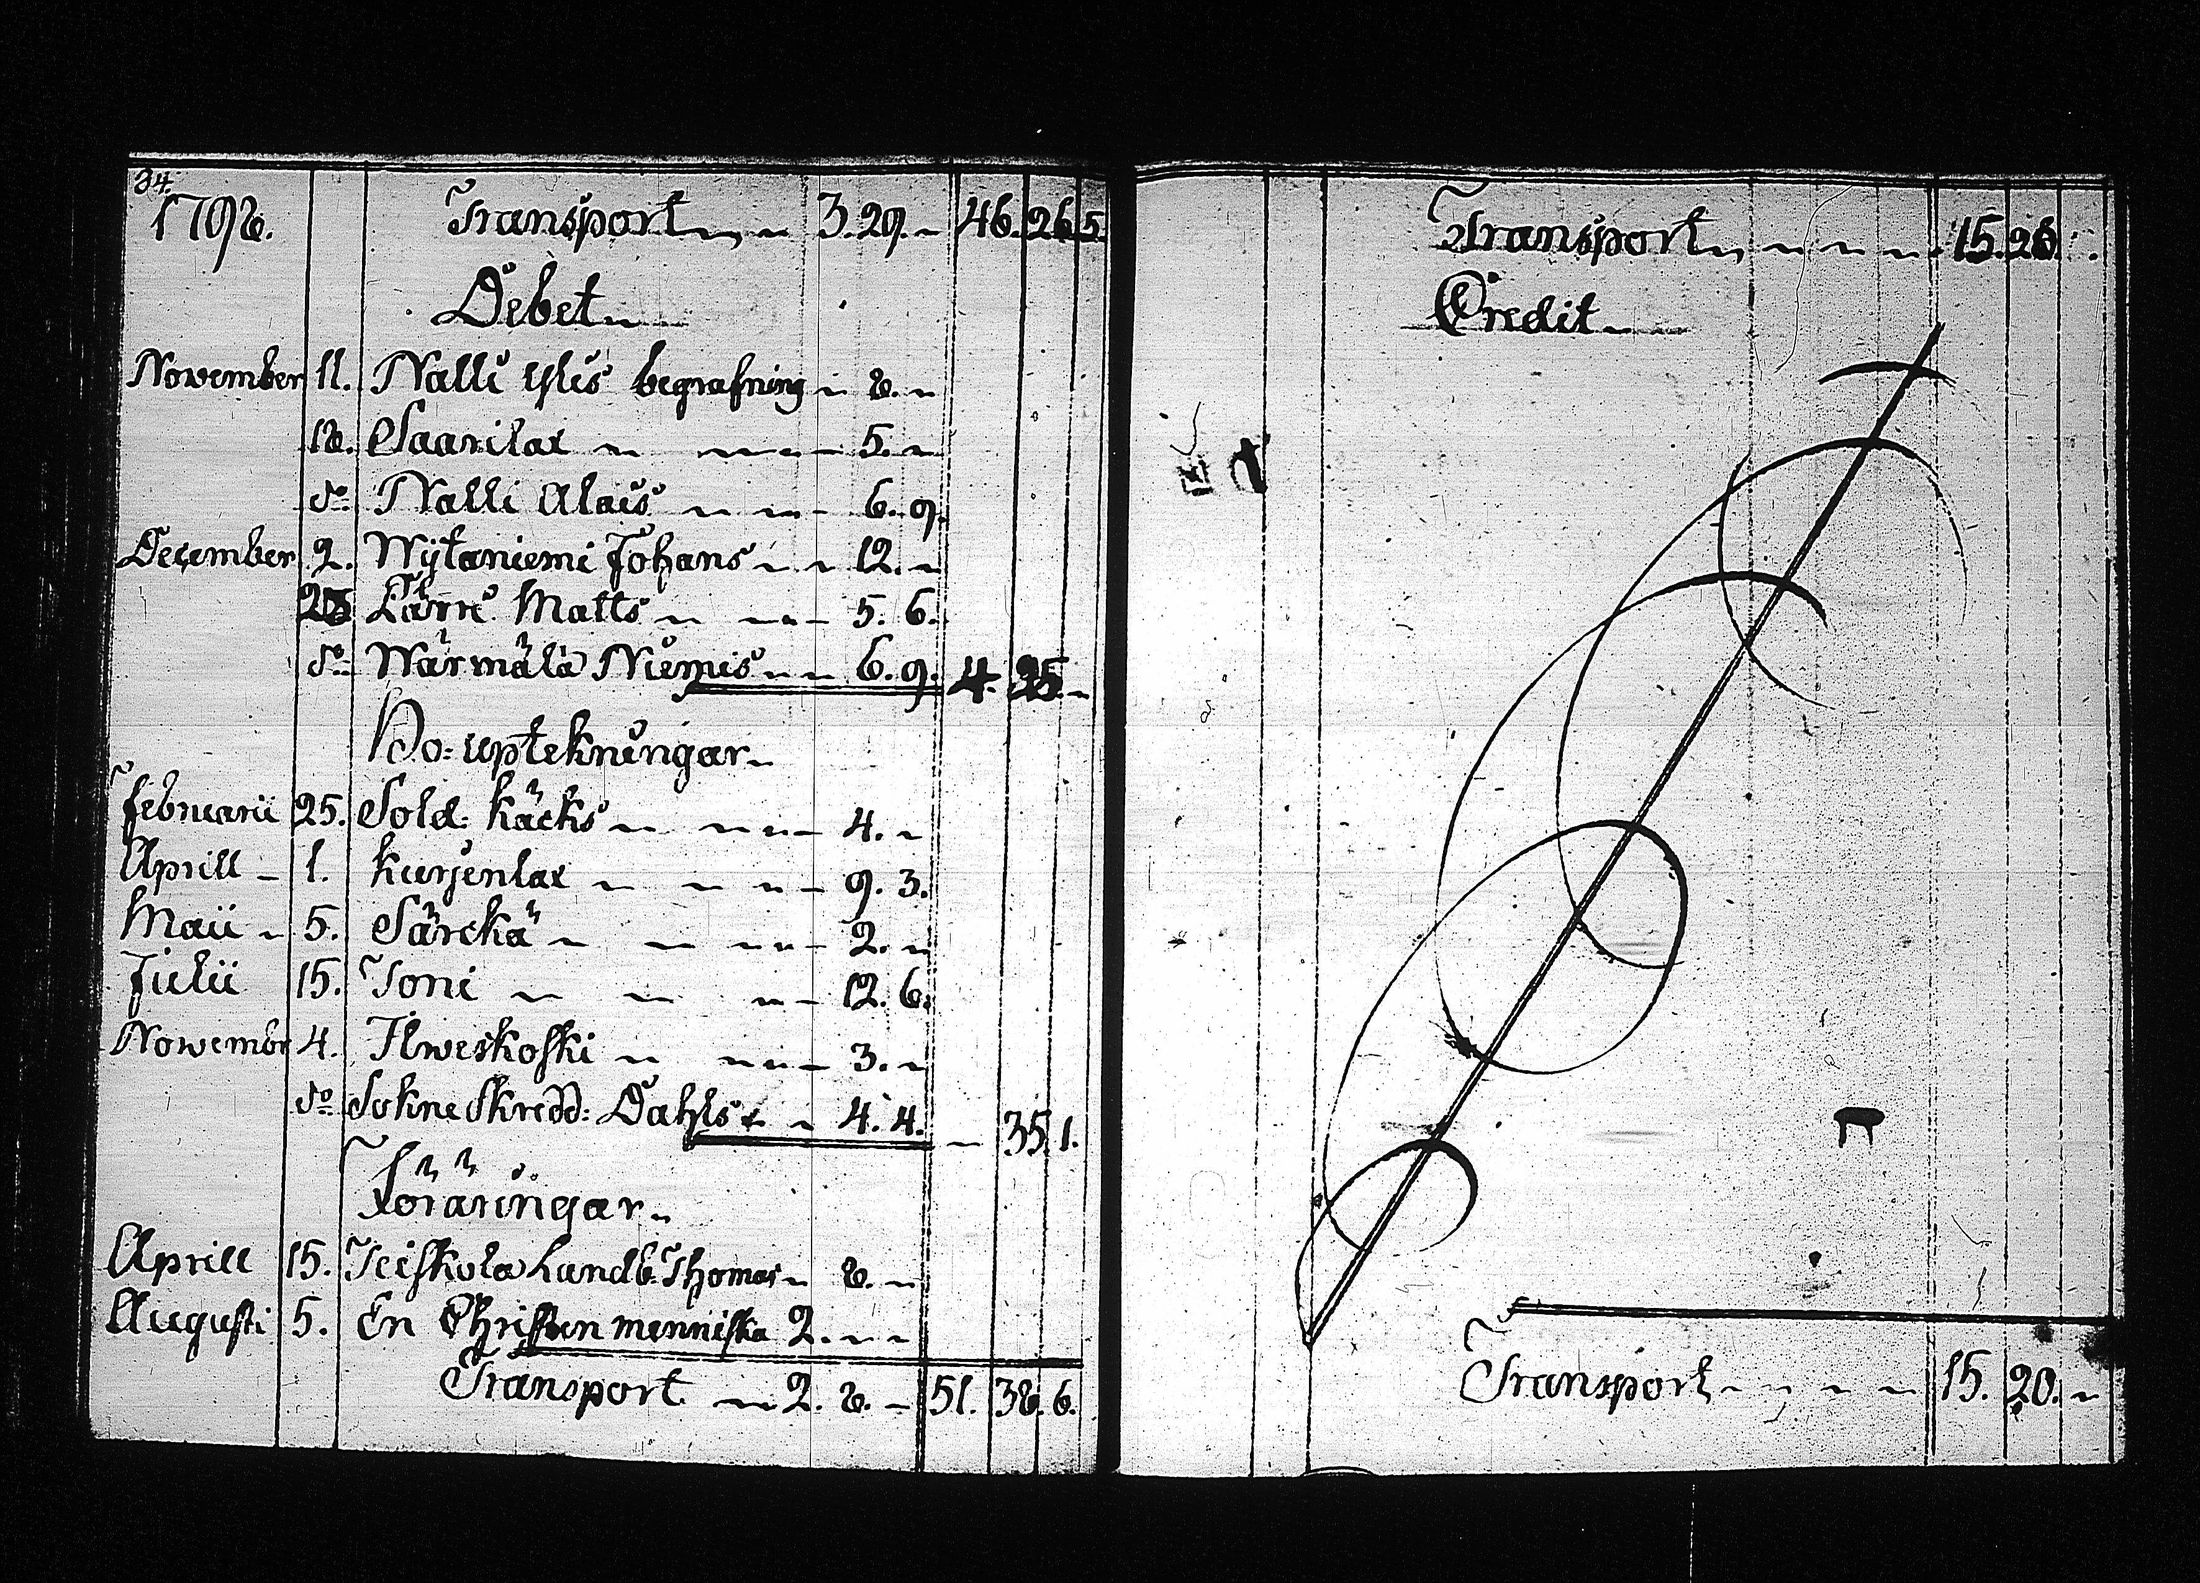 34.
1798. Transport 3.29. 46. 26. 5.
Debet
November 11. Nalli Ylis begrafning 8.
18. Saarilax 5.
do Nalli Alais 6. 9.
December 2. Wÿtaniemi Johans 12.
23 Matts 5. 6.
do Wärmälä Niemis 6. 9. 4. 25.
Bo: uptekningar
Februarii 25. Sold: Käcks 4.
Aprill 1. Kurjenlax 9. 3.
Maii 5. Särckä 2.
Julii 15. Toni 12. 6.
Novembr 4. Ilweskoski 3.
do Sokne Skredd: Dahls 4. 4. 35. 1.
Föräringar
Aprill 15. Teiskola Landb: Thomas 8.
Augusti 5. En Christen menniska 2.
Transport 2. 8. 51. 38. 6.
Transport 15. 20.
Credit
Transport 15. 20.